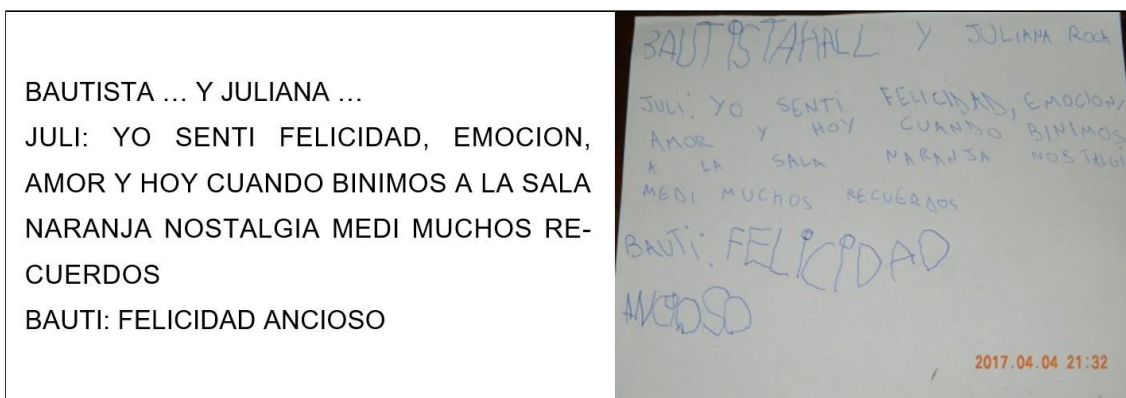 BAUTISTA ... Y JULIANA ...
JULI: YO SENTI FELICIDAD, EMOCION,
AMOR Y HOY CUANDO BINIMOS A LA SALA
NARANJA NOSTALGIA MEDI MUCHOS RE-
CUERDOS
BAUTI: FELICIDAD ANCIOSO
BAUTISTAHALL Y JULIANA ROCA
JULI: YO SENTI FELICIDAD, EMOCION,
AMOR Y HOY CUANDO BINIMOS
A LA SALA NARANJA NOSTALGI
MEDI MUCHOS RECUERDOS
BAUTI: FELICIDAD
ANCIOSO
2017.04.04 21:32